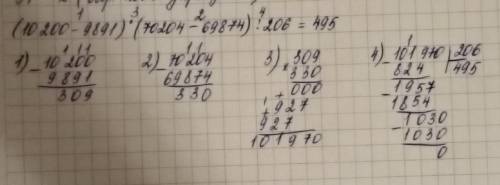 1 3 2 4
(10200-9891)·(70204-69874):206=495
1) -10200
9891
309
2) -70204
69874
330
3) ×309
330
+000
927
927
101970
4) -101970 |206
824 |495
-1957
1854
-1030
1030
0